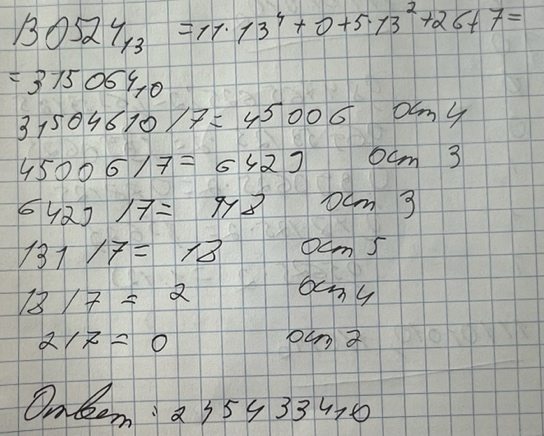 B0524₁₃ = 11·13⁴ + 0 + 5·13² + 26 + 7 =
= 315064₁₀
31504610 / 7 = 45006 ост 4
45006 / 7 = 6429 ост 3
6429 / 7 = 918 ост 3
131 / 7 = 18 ост 5
18 / 7 = 2 ост 4
2 / 7 = 0 ост 2
Ответ: 2454334₁₀